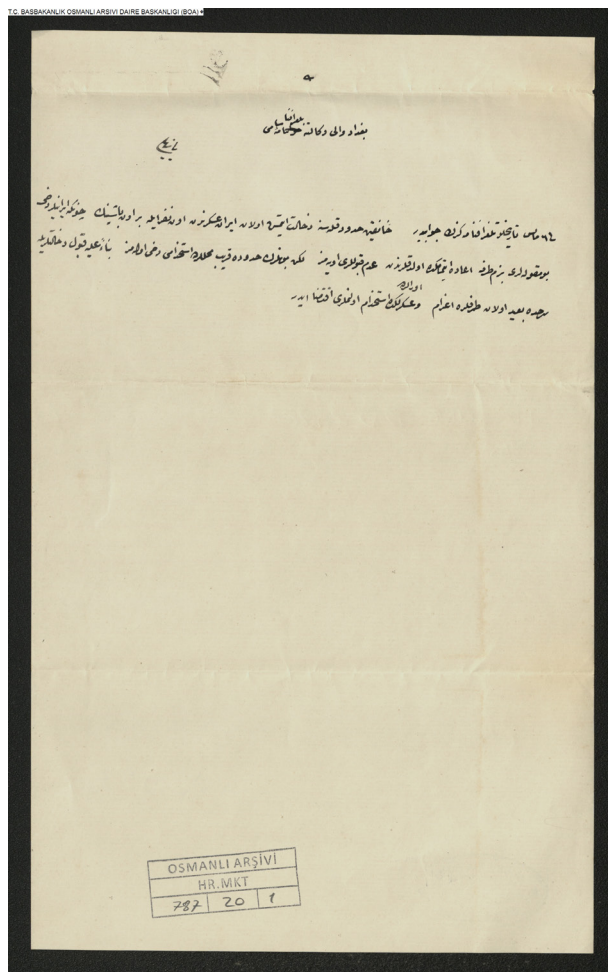 T.C. BASBAKANLIK OSMANLI ARSIVI DAIRE BASKANLIGI (BOA)
بغداد والی وکالته
تاریخلو تلغرافنامه لرینك جوابیدر خانقین حدود قولنه دخالت ایتمش اولان ایران عسکرندن اون نفر ایله بر اون باشینك چونکه ایرانیلر دخی
بو مقوله لری بزم طرفه اعاده ایتمکده اولدقلرندن عدم قبوللری اویمز لکن بونلرك حدوده قریب محللرده استخدامی دخی اوله مز بناءً علیه قبول دخالتلریله
سرحده بعید اولان طرفلره اعزام اوراده وعسکرلکده استخدام اولنملری اقتضا ایدر
OSMANLI ARŞİVİ
HR.MKT
787 20 1